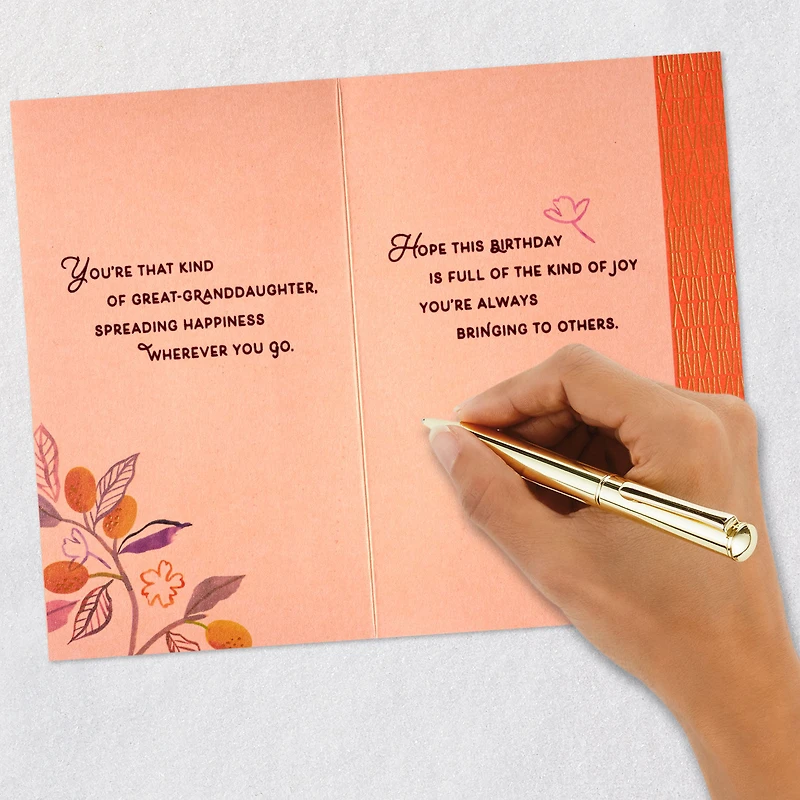 You're that kind
of great-granddaughter,
spreading happiness
wherever you go.
Hope this birthday
is full of the kind of joy
you're always
bringing to others.